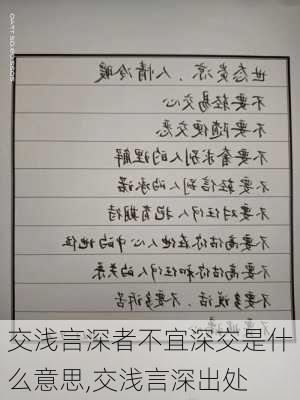 世态炎凉、人情冷暖
不要轻易交心
不要随便交
不要奢求别人的理解
不要轻信别人的承诺
不要对任何人抱有期待
不要高估你在他人心中的地位
不要高估你和任何人的关系
不要多说话、不要多诉苦
交浅言深者不宜深交是什
么意思,交浅言深出处